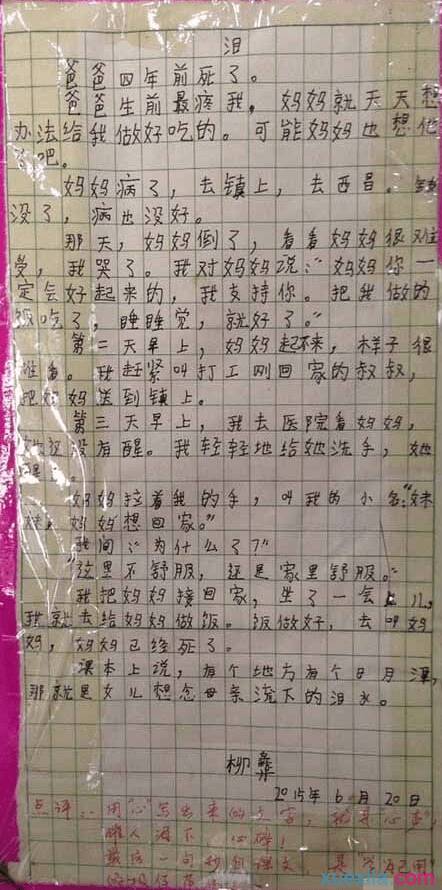 泪
爸爸四年前死了。
爸爸生前最疼我,妈妈就天天想
办法给我做好吃的。可能妈妈也想他
了吧。
妈妈病了,去镇上,去西昌。钱
没了,病也没好。
那天,妈妈倒了,看看妈妈很难
受,我哭了。我对妈妈说:“妈妈你一
定会好起来的,我支持你。把我做的
饭吃了,睡睡觉,就好了。”
第二天早上,妈妈起不来,样子很
难看。我赶紧叫打工刚回家的叔叔,
把妈妈送到镇上。
第三天早上,我去医院看妈妈,
她还没有醒。我轻轻地给她洗手,她
醒了。
妈妈拉着我的手,叫我的小名:“妹
妹,妈妈想回家。”
我问:“为什么了?”
“这里不舒服,还是家里舒服。”
我把妈妈接回家,坐了一会儿,
我就去给妈妈做饭。饭做好,去叫妈
妈,妈妈已经死了。
课本上说,有个地方有个日月潭,
那就是女儿想念母亲流下的泪水。
柳彝
2015年6月20日
点评:用“心”写出来的文字,
催人泪下 心碎!
最后一句 课文